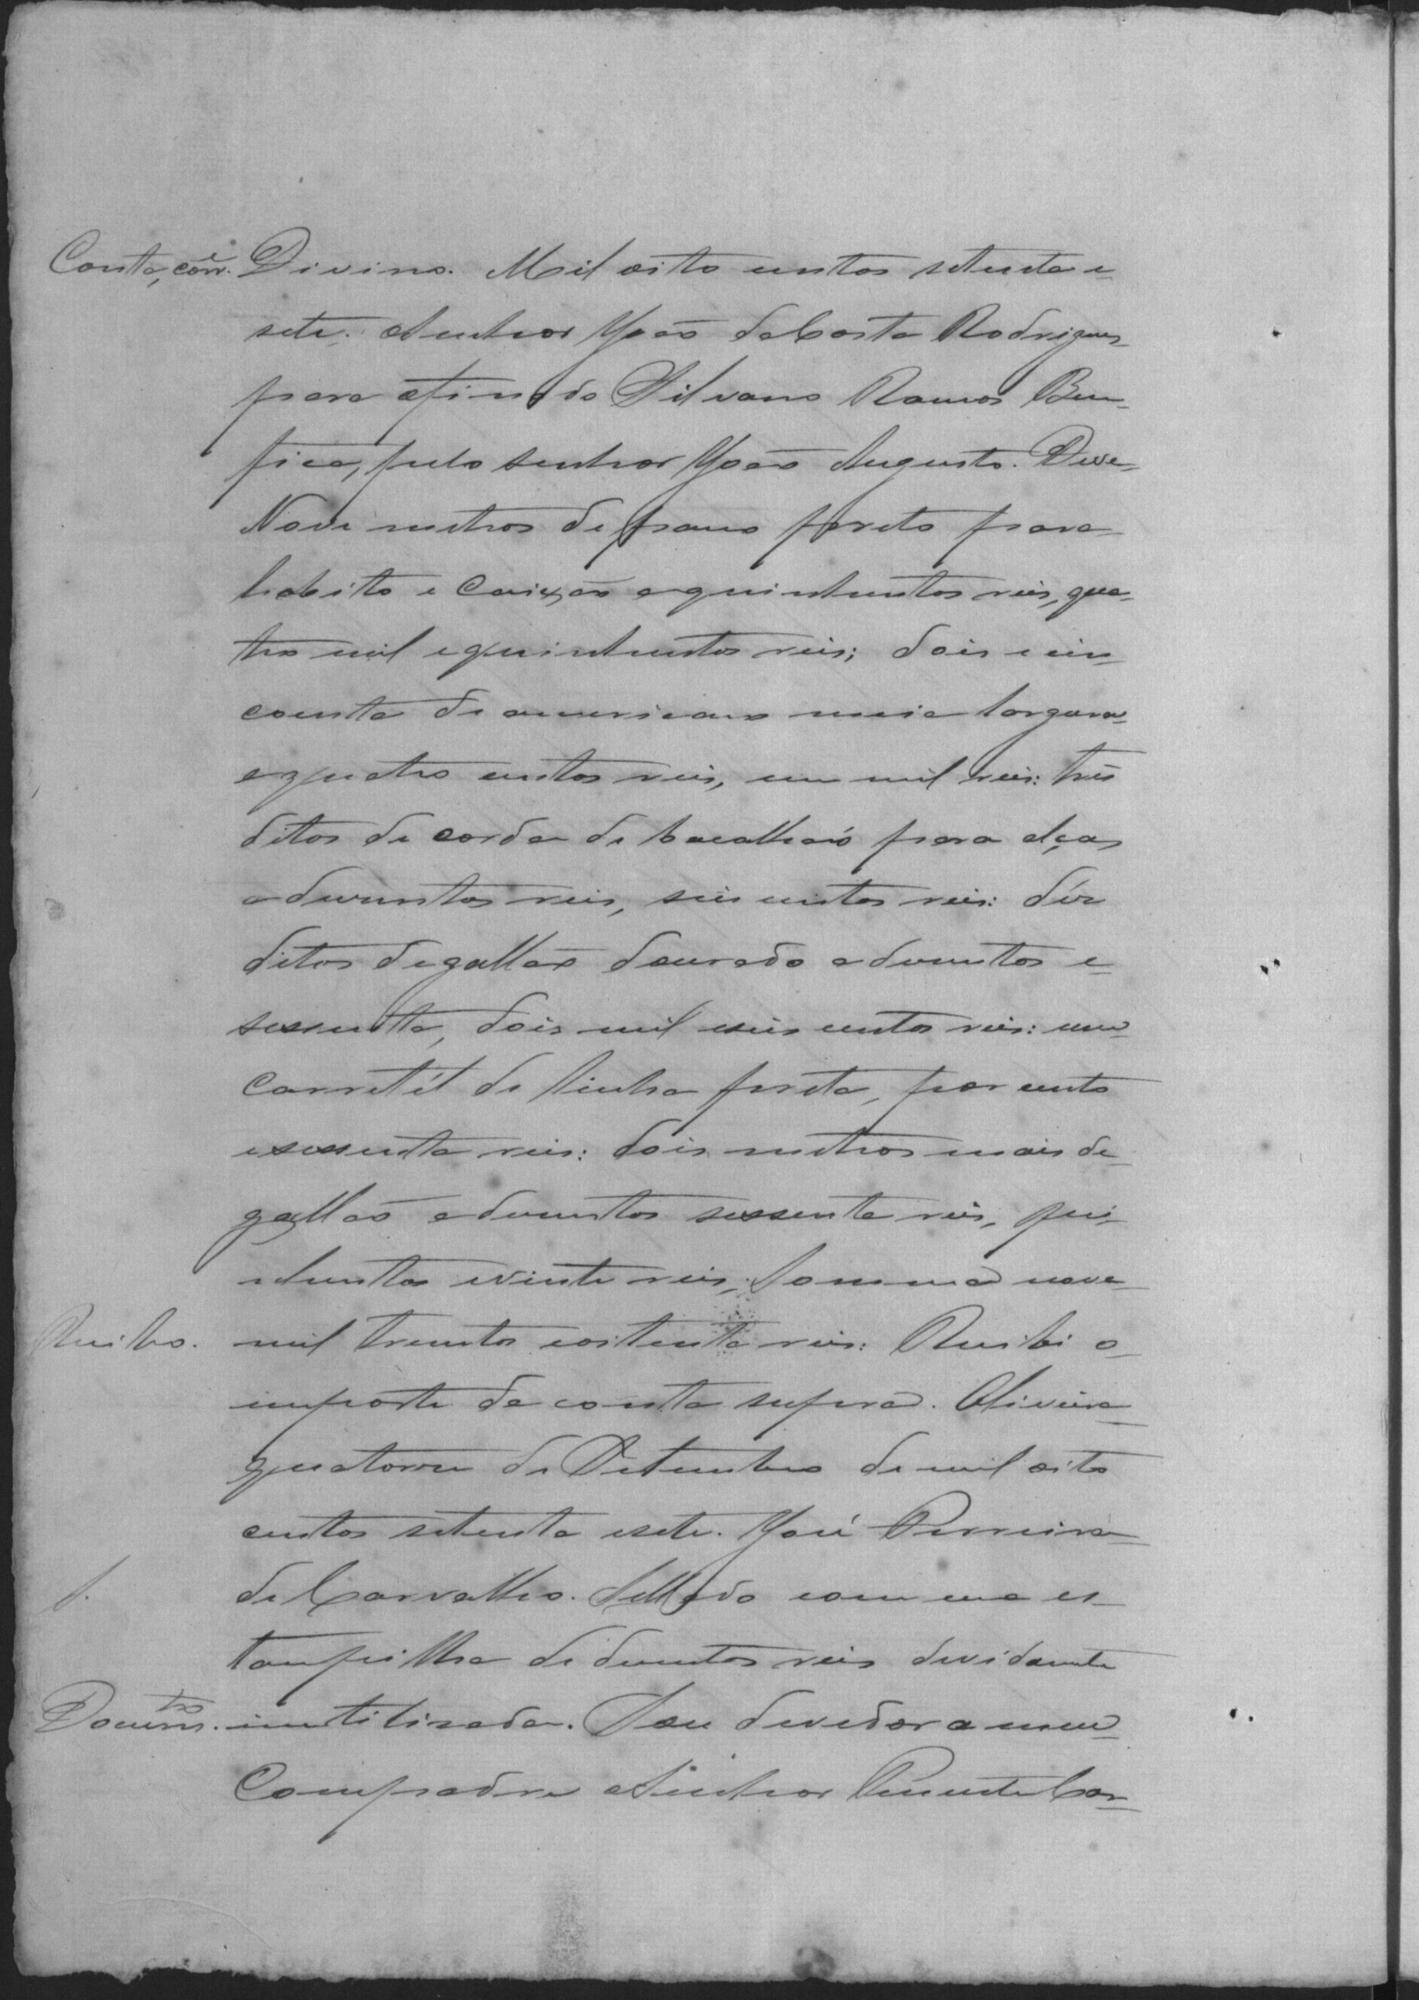 Conta, corr.e Divino. Mil oito centos setenta e
sete. Senhor João da Costa Rodrigues
para o finado Silvano Ramos Ben-
fica, pelo senhor João Augusto. Deve-
Nove metros de panno preto para
habito e Caixão a quinhentos reis, qua-
tro mil e quinhentos reis; dois e cin-
coenta de americano meia largura
a quatro centos reis, um mil reis: tres
ditos de corda de bacalháo para alças
a duzentos reis, seis centos reis: déz
ditos de gallão dourado a duzentos e
sessenta, dois mil e seis centos reis: um
Carretél de linha preta, por cento
e sessenta reis: dois metros mais de
gallão a duzentos sessenta reis, qui-
nhentos e vinte reis, Somma nove
Recibo. mil trezentos e oitenta reis: Recibi o
importe da conta supra. Oliveira
quatorze de Setembro de mil oito
centos setenta e sete. José Ferreira
de Carvalho. Sellado com uma es-
tampilha de duzentos reis devidamente
Docum.to inutilizada. Sou devedor a meu
Compadre Senhor Vicente Cor-